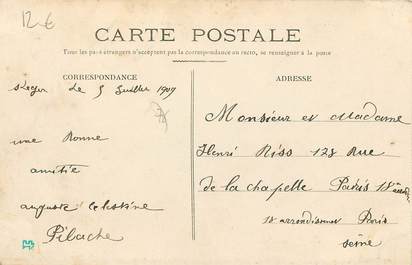 12 €
CARTE POSTALE
Tous les pays étrangers n'acceptent pas la correspondance au recto, se renseigner à la poste
CORRESPONDANCE
ADRESSE
St Leger le 5 Juillet 1909
une Bonne
amitie
auguste Celestine
Pilache
Monsieur et Madame
Henri Riss 128 Rue
de la chapelle Paris 18
18 arrondismer Paris
seine